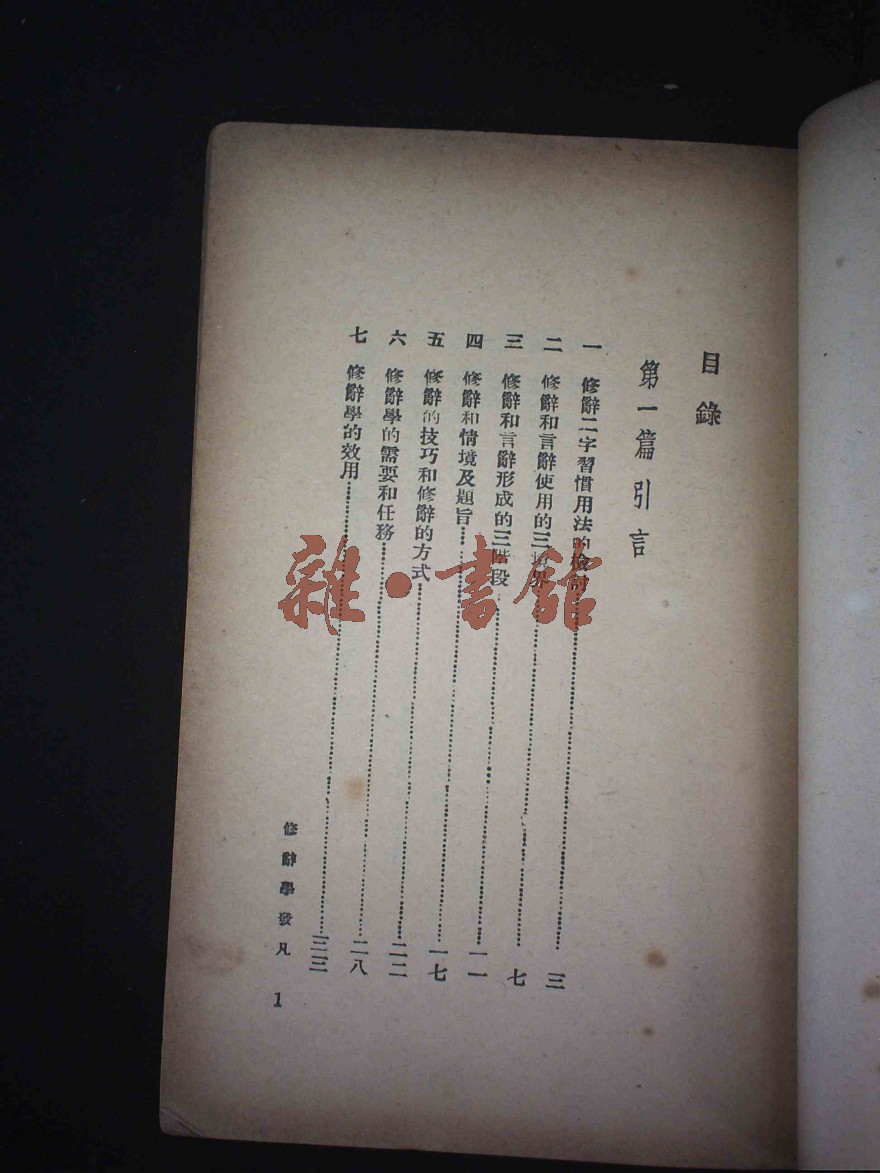 目錄
第一篇 引言
一 修辭二字習慣用法的檢討……三
二 修辭和言辭使用的三境界……七
三 修辭和言辭形成的三階段……一一
四 修辭和情境及題旨……一七
五 修辭的技巧和修辭的方式……二二
六 修辭學的需要和任務……二八
七 修辭學的效用……三三
修辭學發凡 1
雜·書館